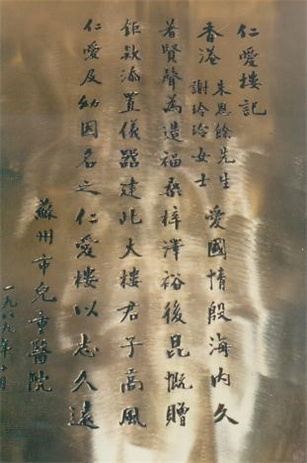 仁愛樓記
香港朱恩餘先生謝玲玲女士愛國情殷海内久
著賢聲為造福桑梓澤裕後昆慨贈
鉅款添置儀器建此大樓君子高風
仁愛及幼因名之仁愛樓以志久遠
蘇州市兒童醫院
一九八九年十月